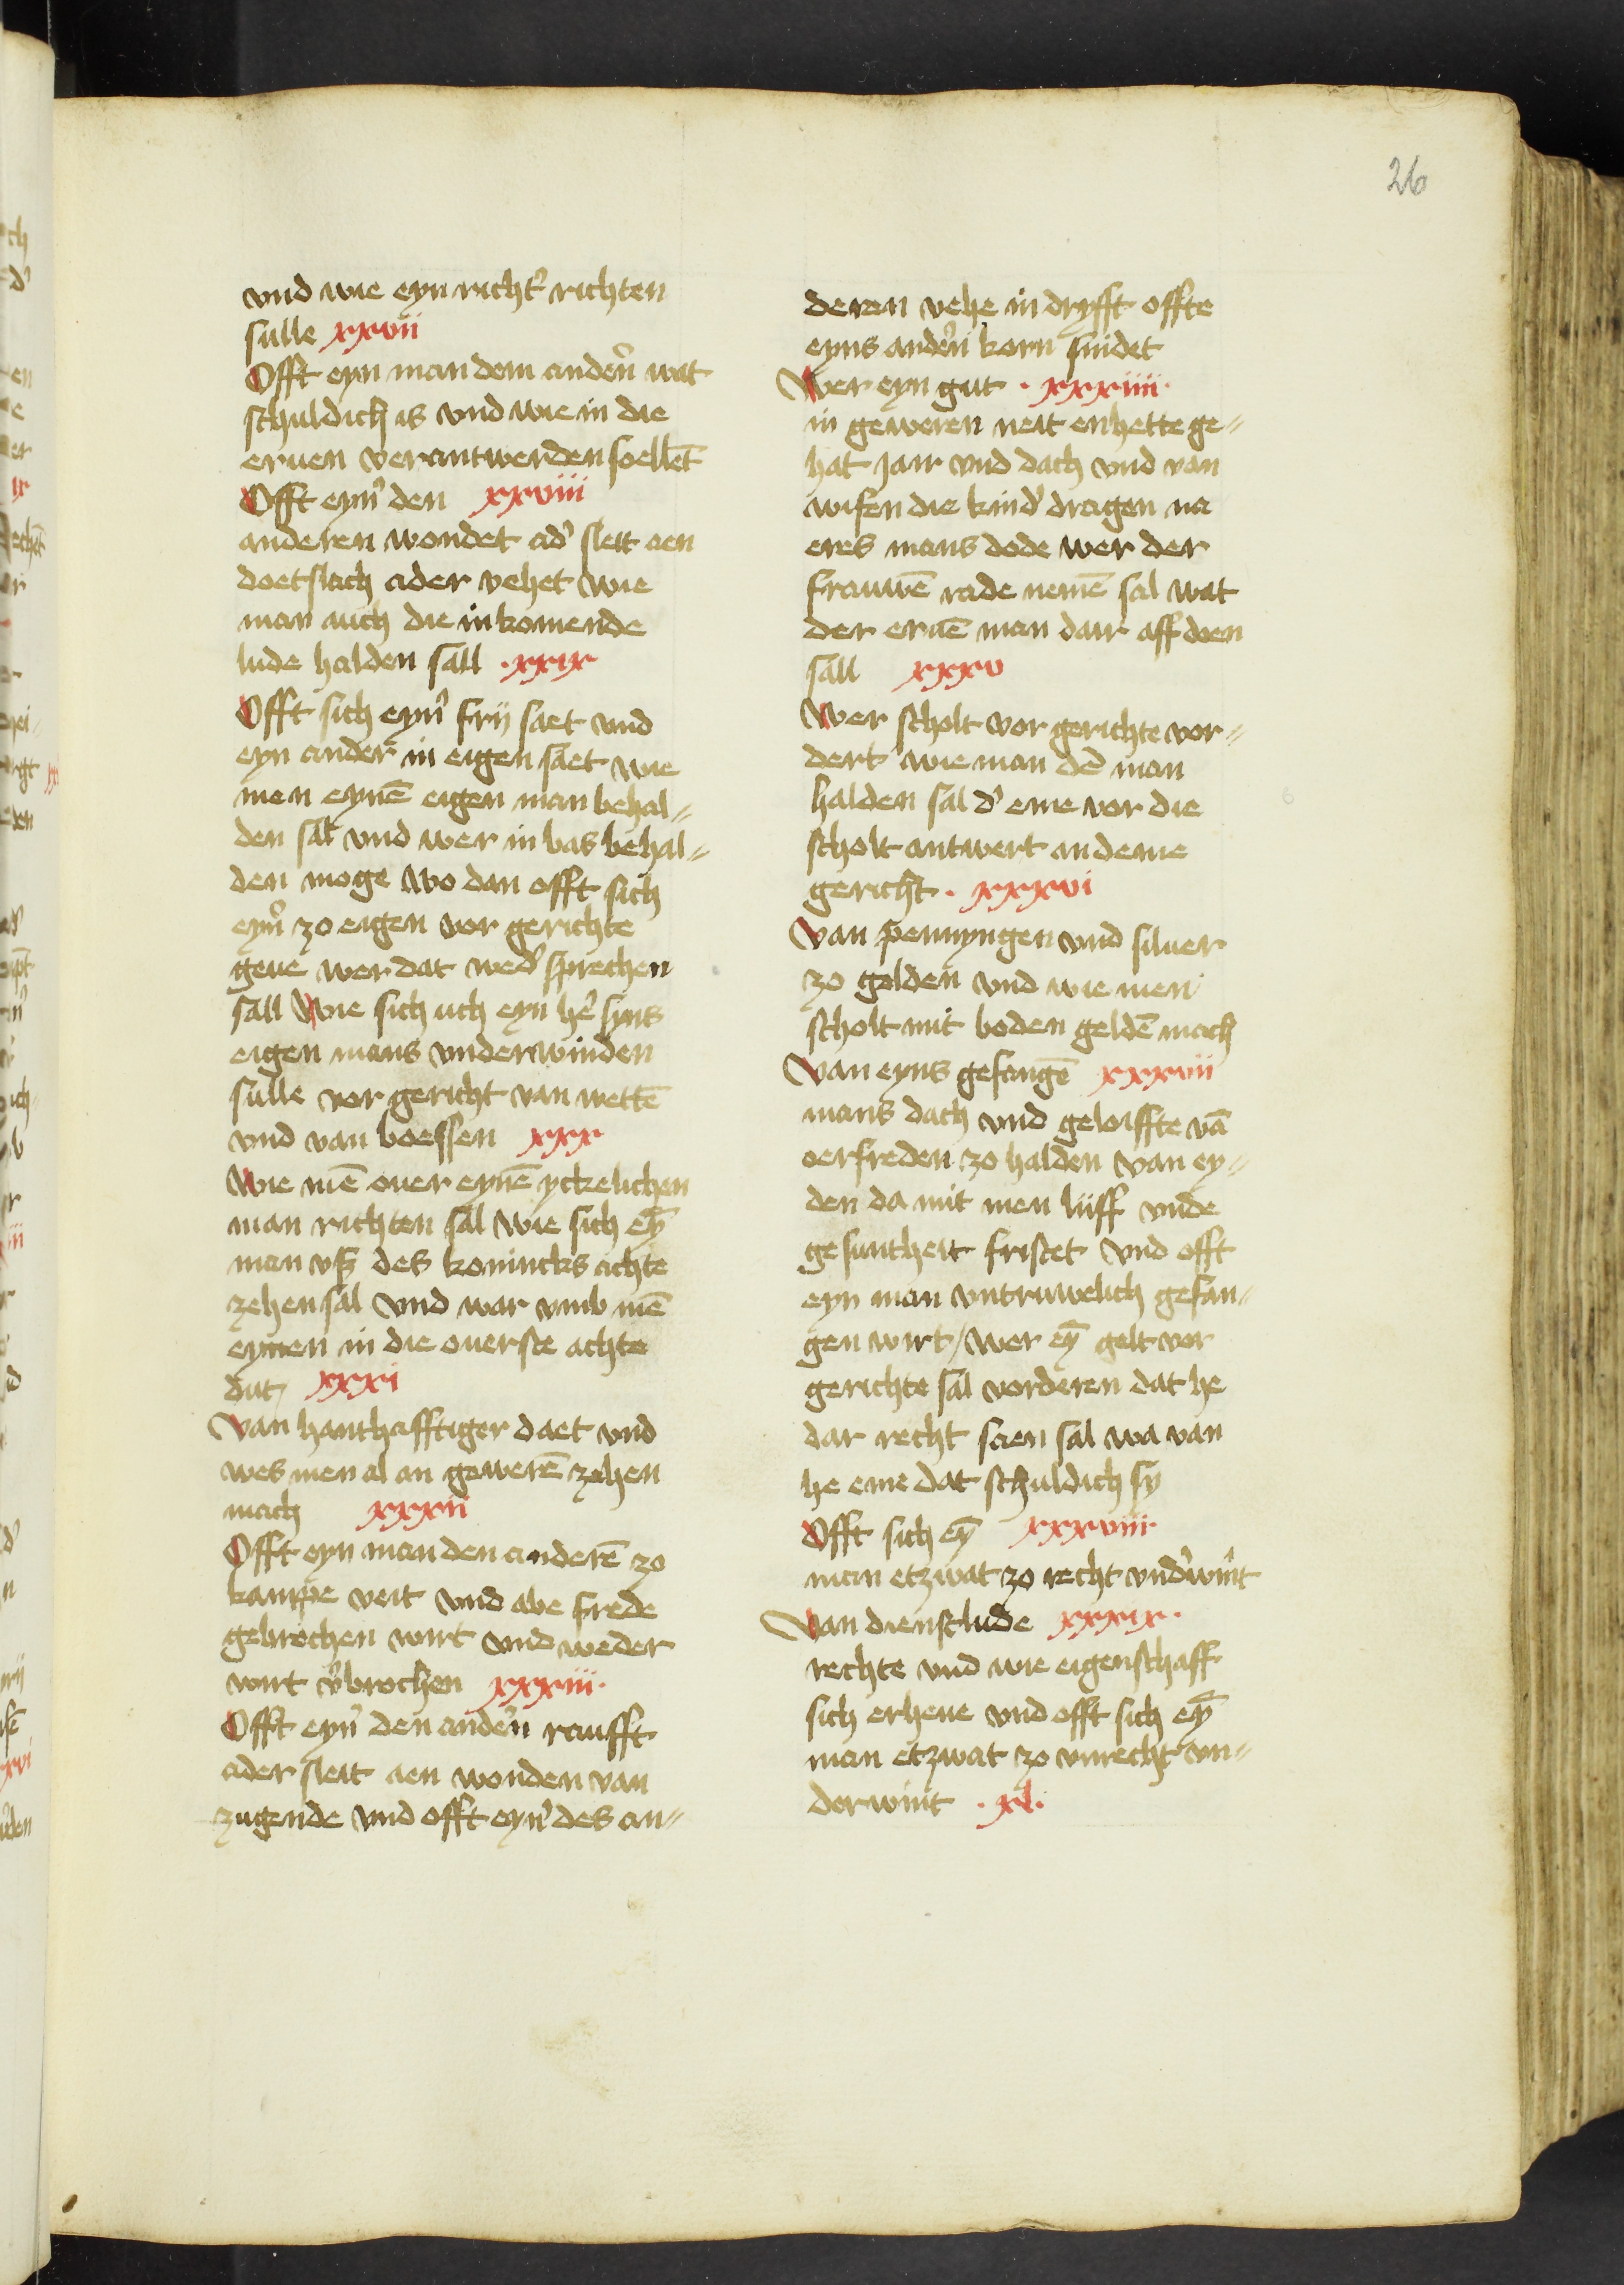 26
vnd wie eyn richt' richten
sulle xxvii
Offt eyn man dem anderẽ wat
schuldich is vnd wie in die
eruen verantwerden soellẽt
Offt eyn' den xxviii
anderen wondet ad' sleit aen
doetslach ader vehet wie
man auch die inkomende
lude halden sall .xxix
Offt sich eyn' frij saet vnd
eyn ander in eigen saet wie
men eynẽ eigen man behal=
den sal vnd wer in bas behal=
den moge wo dan offt sich
eyn' zo eigen vor gerichte
geue wer dat wed' sprechen
sall Wie sich uch eyn he' syns
eigen mans vnderwinden
sulle vor gericht van wettẽ
vnd van boessen xxx
Wie mẽ ouer eynẽ yckelichen
man richten sal wie sich eỹ
man vß des konincks achte
zehen sal vnd war vmb mẽ
eynen in die ouerste achte
dut xxxi
Van hanthafftiger daet vnd
wes men al an gewerẽ zehen
mach xxxii
Offt eyn man den anderẽ zo
kampe veit vnd abe frede
gebrochen wirt vnd weder
wirt v'brochen xxxiii.
Offt eyn' den ande'n raufft
ader sleit aen wonden van
zugende vnd offt eyn' des an=
deren vehe in dryfft offte
eyns ande'n korn snidet
Wer eyn gut . xxxiiii.
in geweren neit enhette ge=
hat jair vnd dach vnd van
wifen die kind' dragen na
eres mans dode wer der
frauwẽ rade nemẽ sal wat
der eruẽ man dair aff doen
sall xxxv
Wer scholt vor gerichte vor=
dert wie man dẽ man
halden sal d' eme vor die
scholt antwert an deme
gericht . xxxvi
Van pennyngen vnd siluer
zo gelden vnd wie men
scholt mit boden geldẽ mach
Van eyns gefangẽ xxxvii
mans dach vnd geloiffte vã
oerfreden zo halden van ey=
den da mit men liiff vnde
gesuntheit fristet vnd offt
eyn man vntruwelich gefan=
gen wirt / wer eỹ gelt vor
gerichte sal vorderen dat he
dar recht saen sal wa van
he eme dat schuldich sy
Offt sich eỹ xxxviii.
man etzwat zo recht vnd'wint
Van dienstlude xxxix.
rechte vnd wie eigenschaff
sich erheue vnd offt sich eỹ
man etzwat zo vnrecht vn=
derwint . xl.